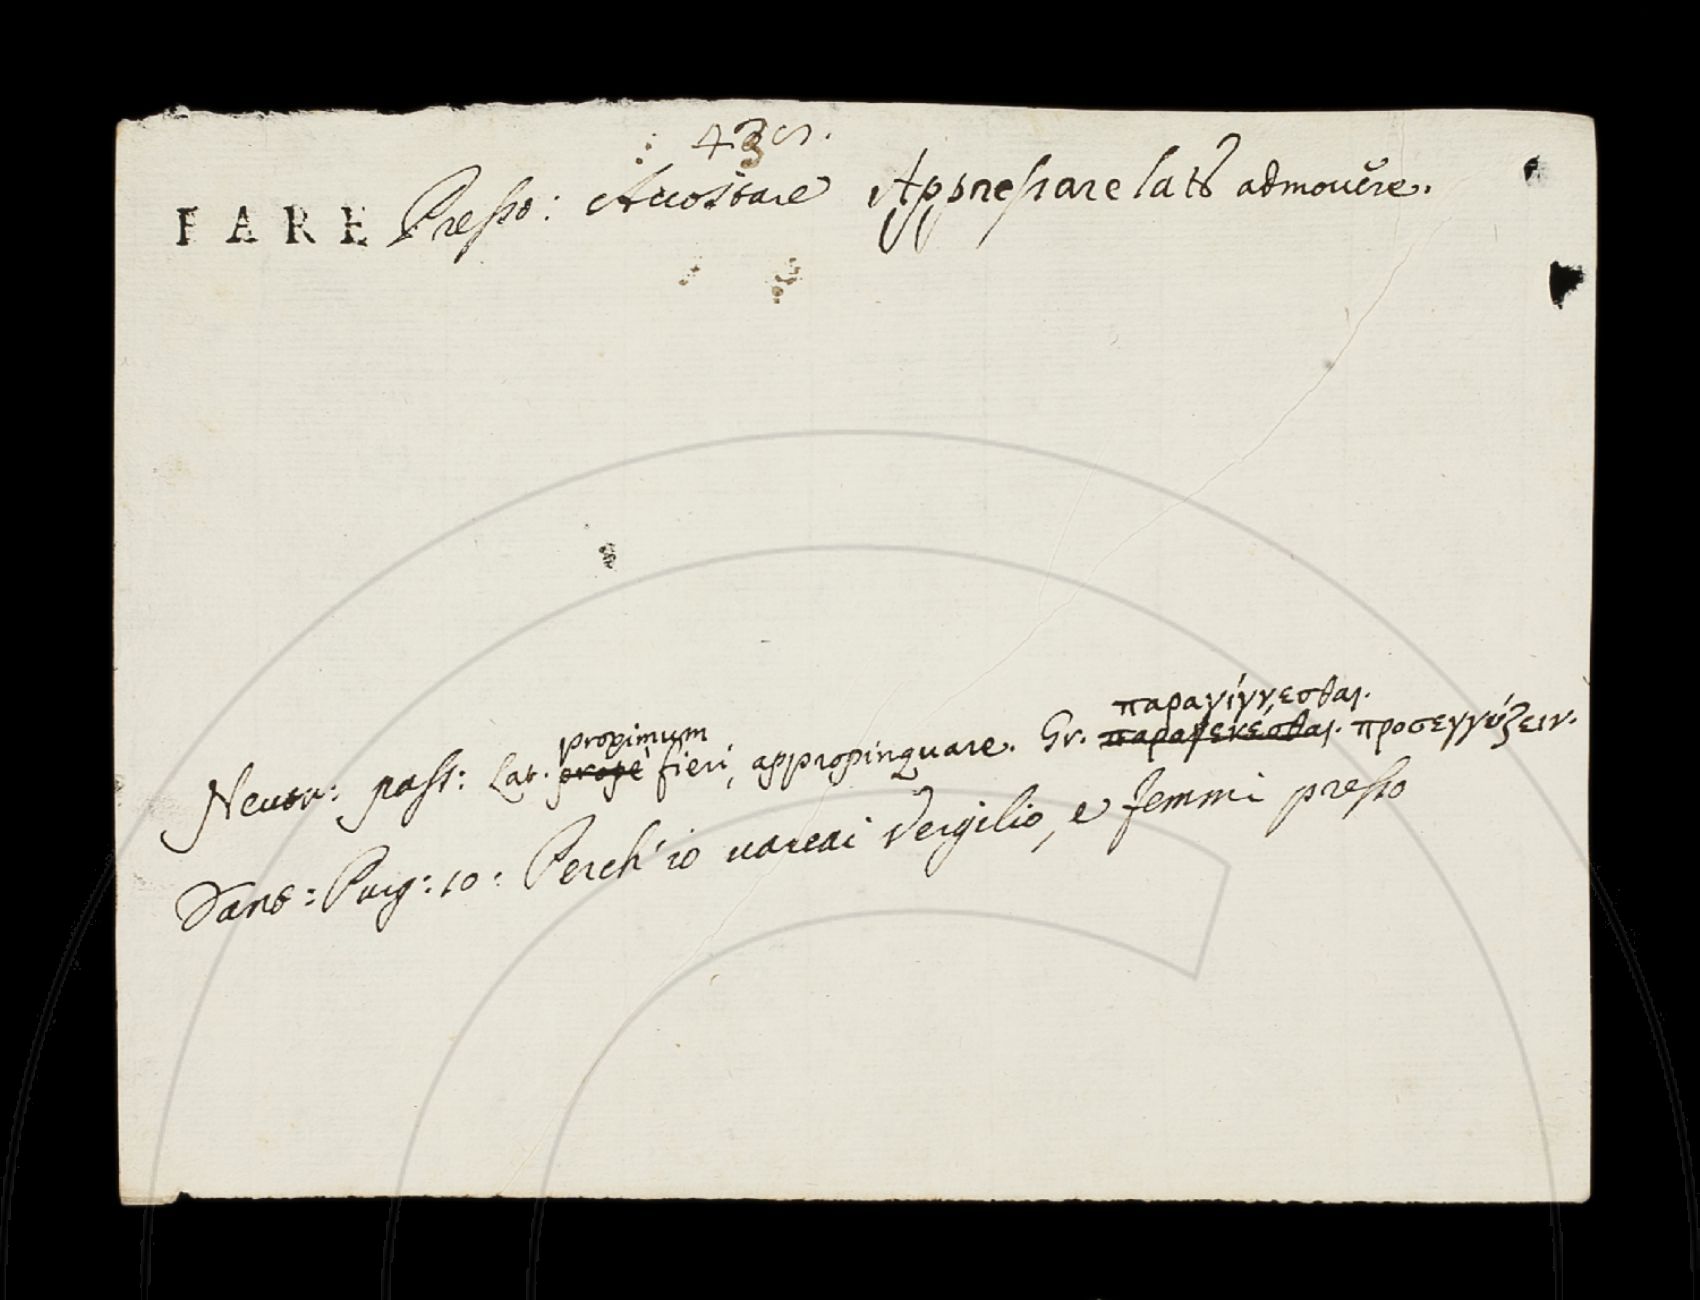 FARE Presso: Accostare Appressare lat. admovere.
propimum
παραγίγνεσθαι.
Neutr: pass: Lat. prope fieri, appropinquare. Gr. παραγενέσθαι. προσεγγύζειν.
Dant: Purg: 10: Perch' io varcai Vergilio, e femmi presso